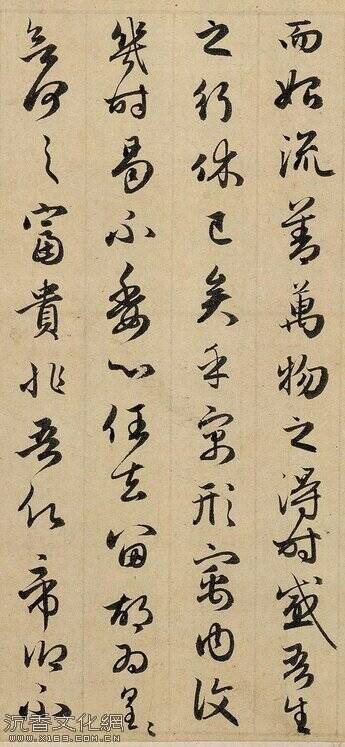 而始流善萬物之得時感吾生
之行休已矣乎寓形寓内復
幾時曷不委心任去留胡為皇〻
欲何之富貴非吾願帝鄉不
沉香文化網